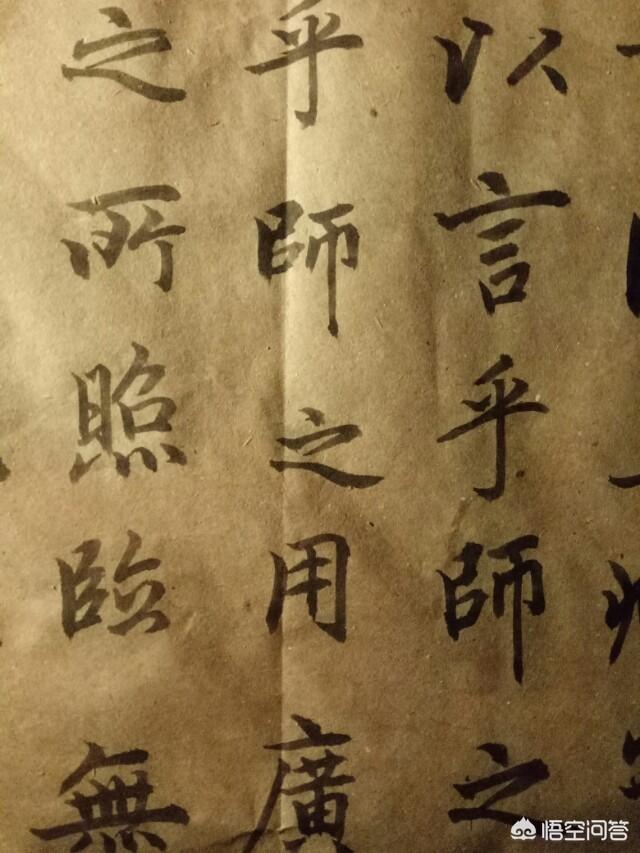 以言乎師之
乎師之用廣
之所照臨無
悟空问答